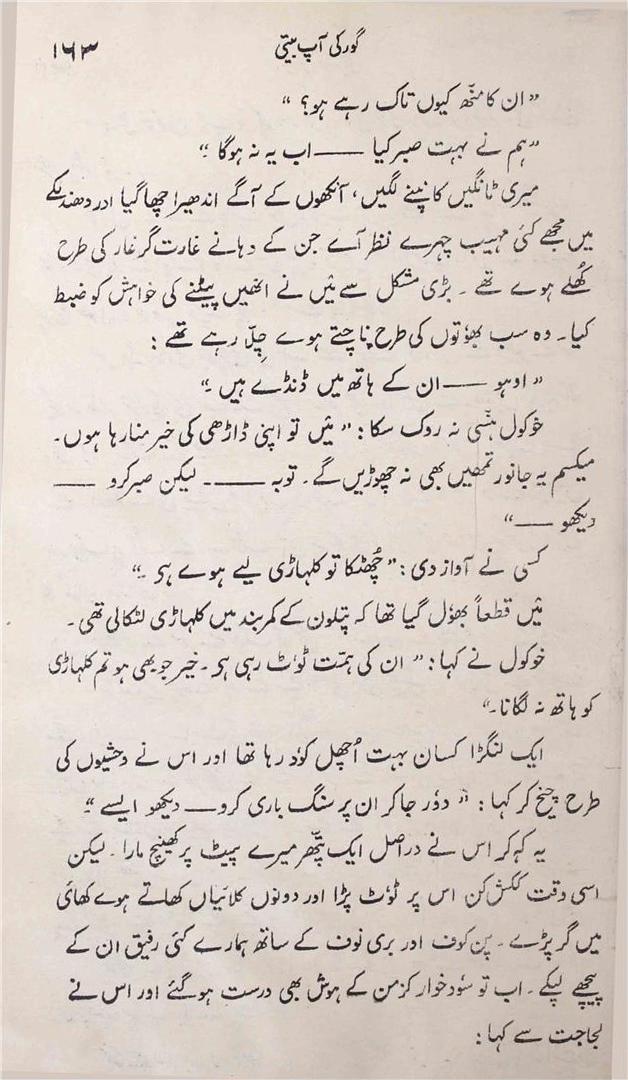 گورکی آپ بیتی ۱۶۳
”ان کا منھ کیوں تاک رہے ہو؟“
”ہم نے بہت صبر کیا —— اب یہ نہ ہوگا۔“
میری ٹانگیں کانپنے لگیں، آنکھوں کے آگے اندھیرا چھا گیا اور دھندلکے
میں مجھے کئی مہیب چہرے نظر آے جن کے دہانے غارت گر غار کی طرح
کھلے ہوے تھے۔ بڑی مشکل سے میں نے انھیں پیٹنے کی خواہش کو ضبط
کیا۔ وہ سب بھوٗتوں کی طرح ناچتے ہوے چِلّا رہے تھے:
”اوہو —— ان کے ہاتھ میں ڈنڈے ہیں۔“
خوکول ہنسی نہ روک سکا: ”میں تو اپنی ڈاڑھی کی خیر منا رہا ہوں۔
میکسم یہ جانور تمھیں بھی نہ چھوڑیں گے۔ توبہ ——۔ لیکن صبر کرو ——
دیکھو ——“
کسی نے آواز دی: ”چُھٹکا تو کلہاڑی لیے ہوے ہی۔“
میں قطعاً بھوٗل گیا تھا کہ پتلون کے کمربند میں کلہاڑی لٹکالی تھی۔
خوکول نے کہا: ”ان کی ہمّت ٹوٗٹ رہی ہی۔ خیر جو بھی ہو تم کلہاڑی
کو ہاتھ نہ لگانا۔“
ایک لنگڑا کسان بہت اُچھل کوٗد رہا تھا اور اس نے وحشیوں کی
طرح چیخ کر کہا: ”دوٗر جا کر ان پر سنگ باری کرو—— دیکھو ایسے۔“
یہ کہ کر اس نے دراصل ایک پتّھر میرے پیٹ پر کھینچ مارا۔ لیکن
اسی وقت ککش کن اس پر ٹوٗٹ پڑا اور دونوں کلائیاں کھاتے ہوے کھائی
میں گر پڑے۔ پن کوف اور بری نوف کے ساتھ ہمارے کئی رفیق ان کے
پیچھے لپکے۔ اب تو سوٗد خوار کزمن کے ہوش بھی درست ہوگئے اور اس نے
لجاجت سے کہا: